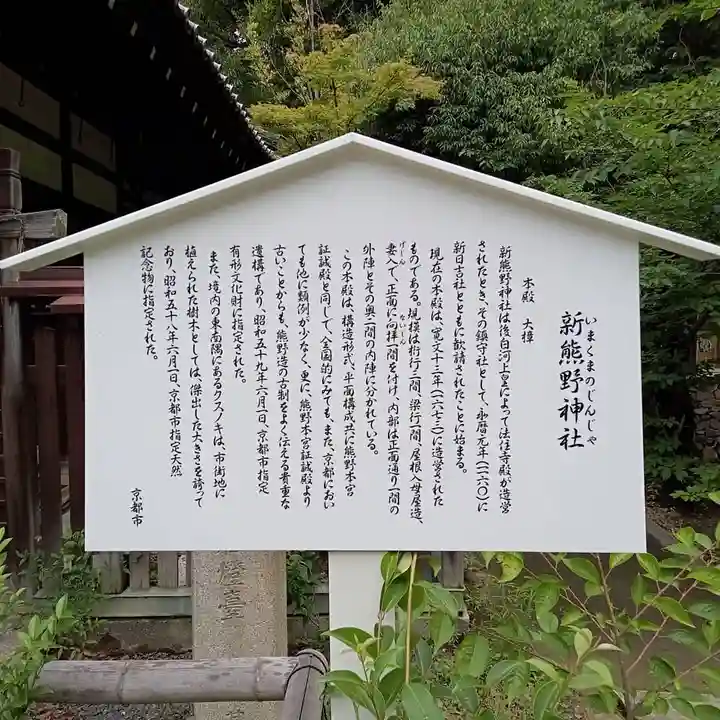 いまくまのじんじゃ
新熊野神社
本殿 大樟
新熊野神社は後白河上皇によって法住寺殿が造営
されたとき、その鎮守社として、永暦元年(一一六〇)に
新日吉社とともに歓請されたことに始まる。
現在の本殿は、寛文十三年(一六七三)に造営された
ものである。規模は桁行三間、梁行二間、屋根入母屋造、
妻入で、正面に向拝一間を付け、内部は正面通り一間の
げじん ないじん
外陣とその奥二間の内陣に分かれている。
この本殿は、構造形式、平面構成共に熊野本宮
証誠殿と同じで、全国的にみても、また、京都におい
ても他に類例が少なく、更に、熊野本宮証誠殿より
古いことからも、熊野造の古制をよく伝える貴重な
遺構であり、昭和五十九年六月一日、京都市指定
有形文化財に指定された。
また、境内の東南隅にあるクスノキは、市街地に
植えられた樹木としては、傑出した大きさを誇って
おり、昭和五十八年六月一日、京都市指定天然
記念物に指定された。
京都市
燈臺